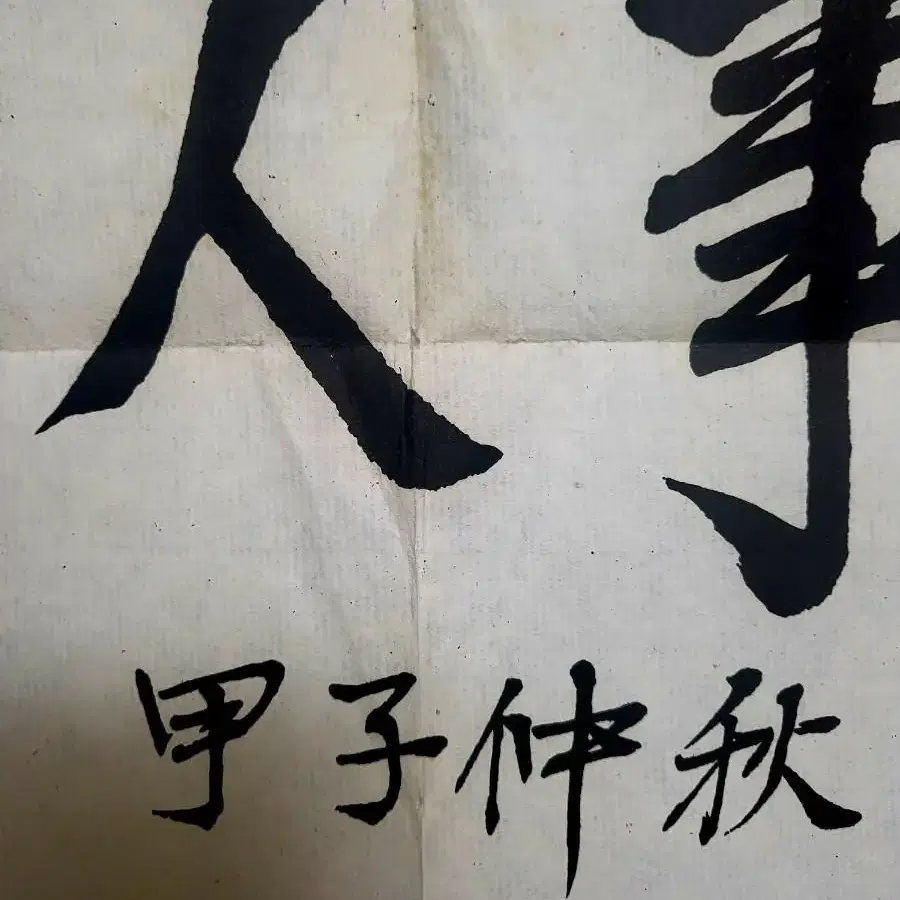 人事
甲子仲秋